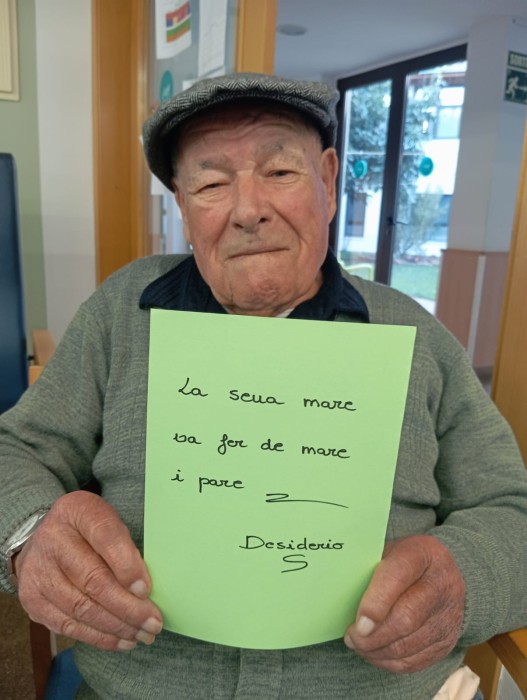 La seua mare
va fer de mare
i pare
Desiderio
S